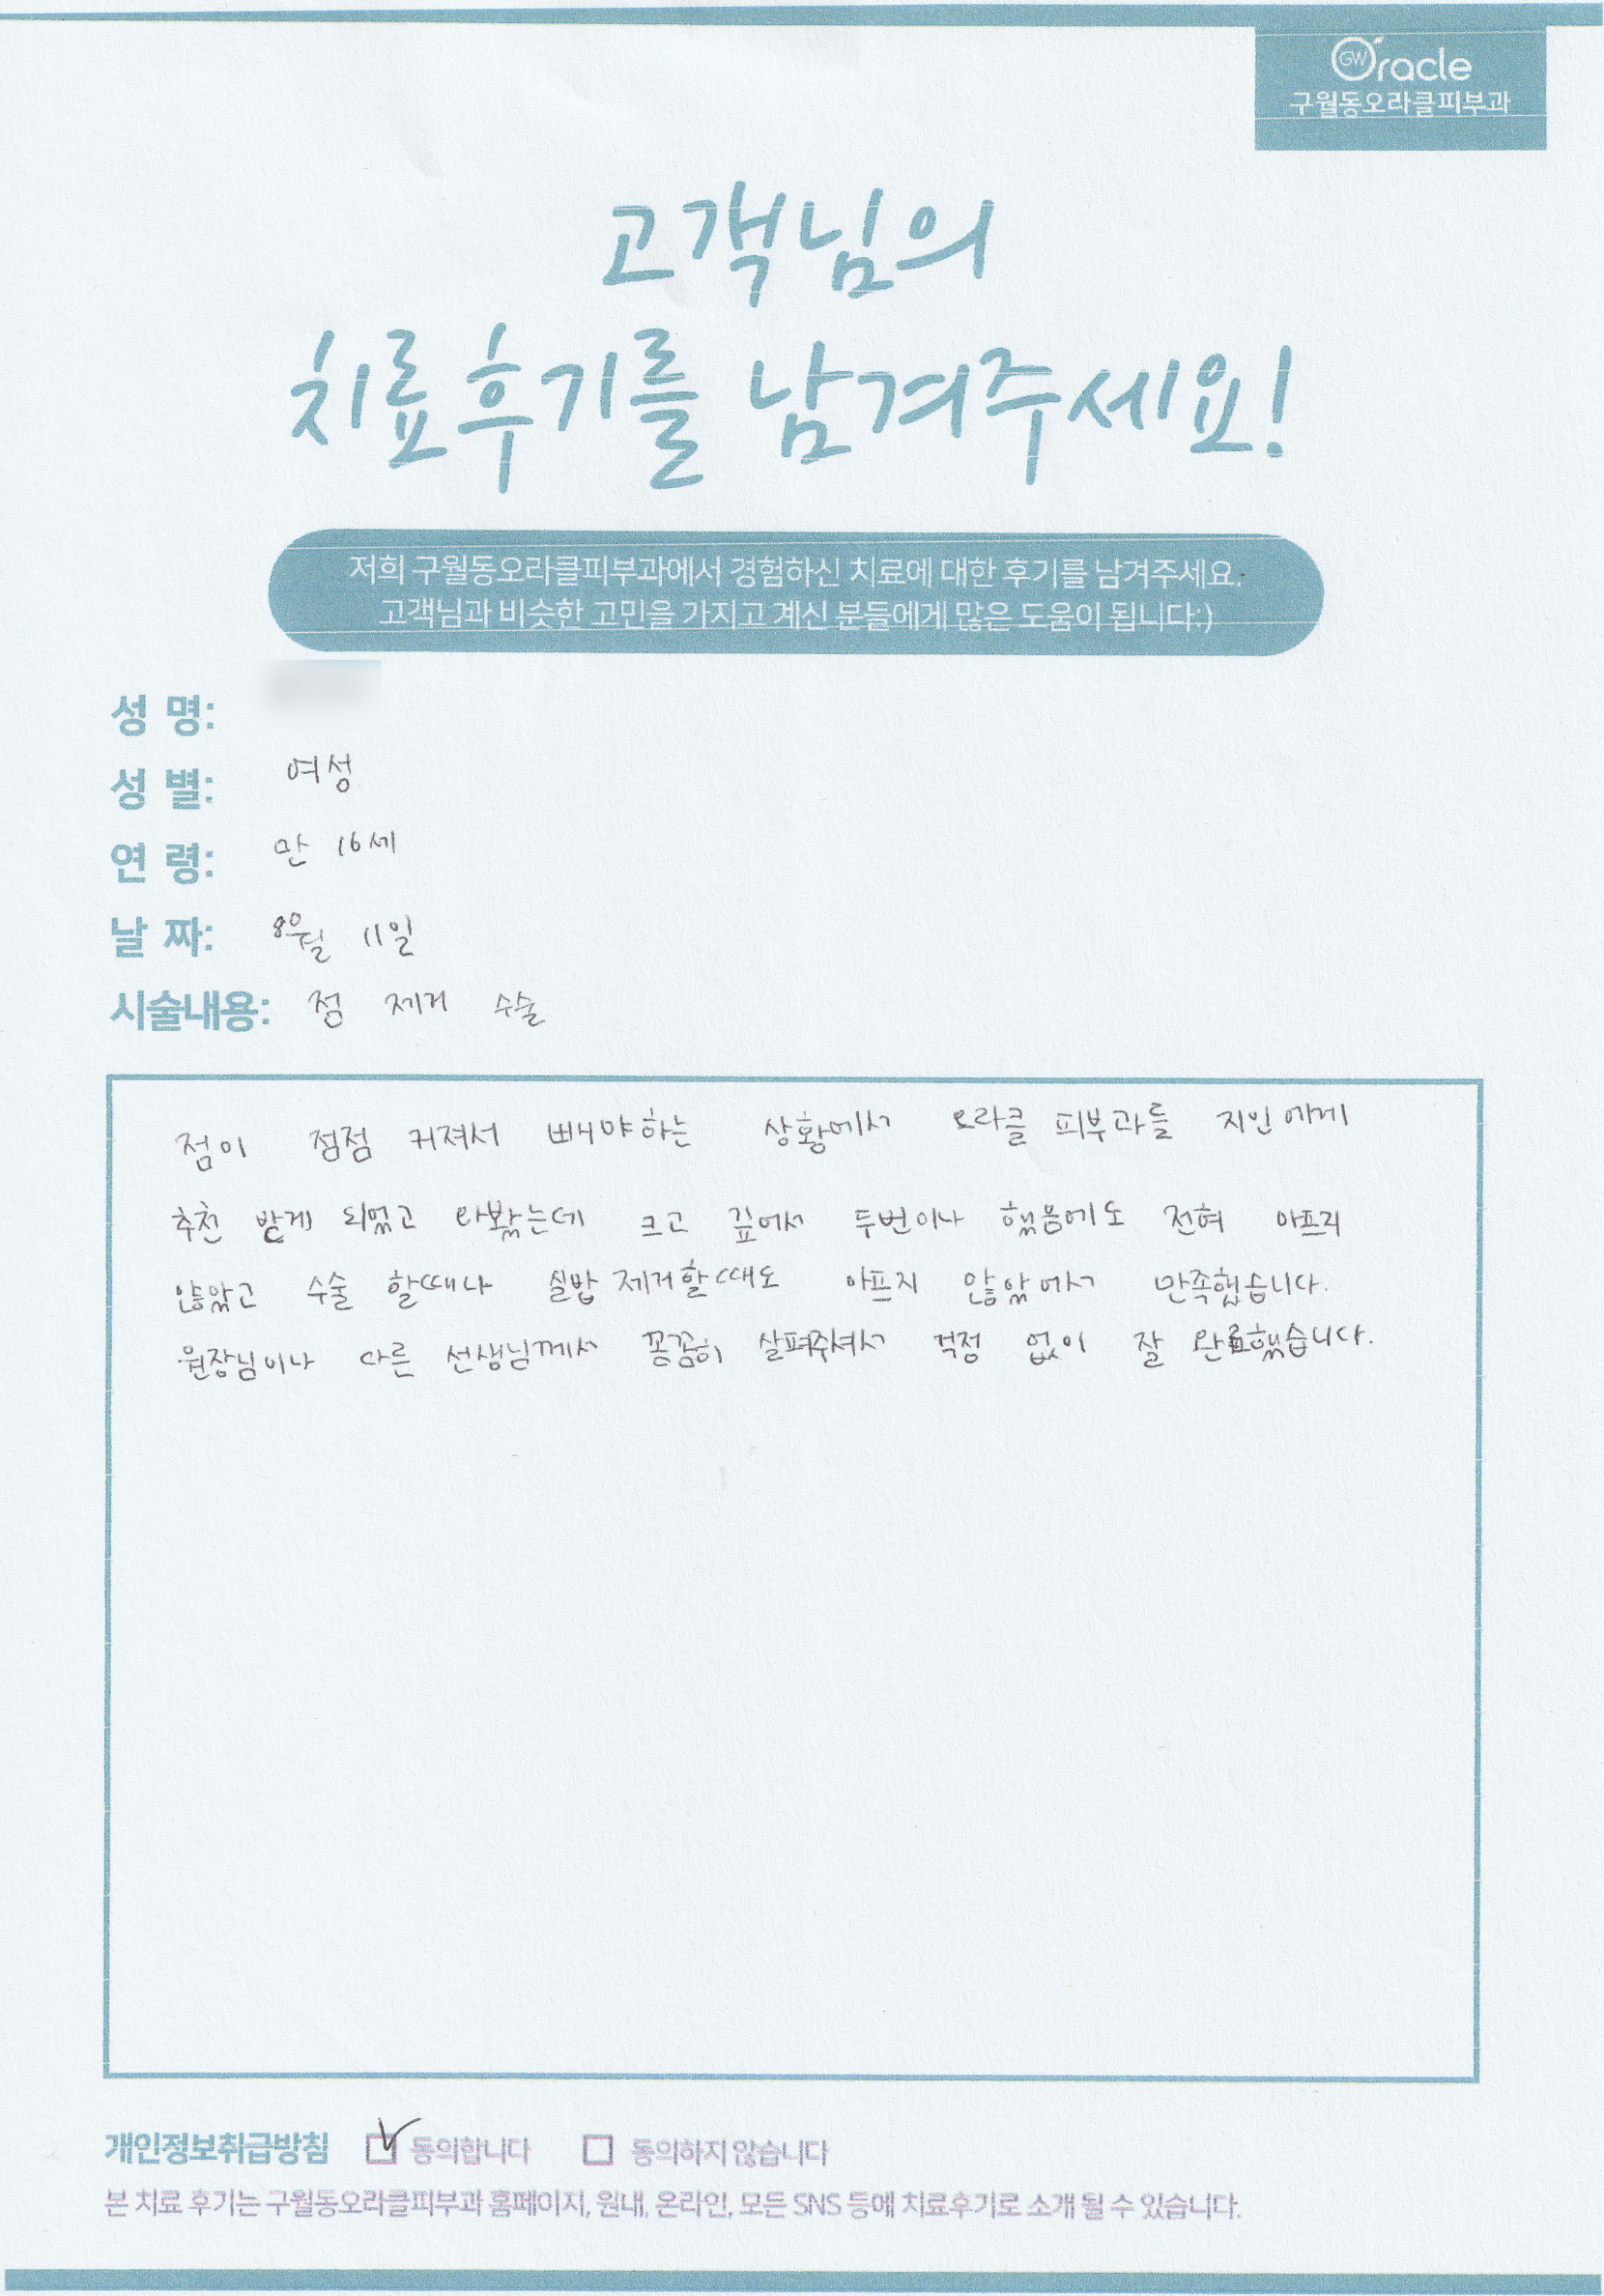 GW Oracle
구월동오라클피부과
고객님의
치료후기를 남겨주세요!
저희 구월동오라클피부과에서 경험하신 치료에 대한 후기를 남겨주세요.
고객님과 비슷한 고민을 가지고 계신 분들에게 많은 도움이 됩니다:)
성 명:
성 별: 여성
연 령: 만 16세
날 짜: 8월 11일
시술내용: 점 제거 수술
점이 점점 커져서 빼야하는 상황에서 오라클 피부과를 지인에게
추천 받게 되었고 와봤는데 크고 깊어서 두번이나 했음에도 전혀 아프지
않았고 수술 할때나 실밥 제거할때도 아프지 않았어서 만족했습니다.
원장님이나 다른 선생님께서 꼼꼼히 살펴주셔서 걱정 없이 잘 완료했습니다.
개인정보취급방침 동의합니다 동의하지 않습니다
본 치료 후기는 구월동오라클피부과 홈페이지, 원내, 온라인, 모든 SNS 등에 치료후기로 소개 될 수 있습니다.